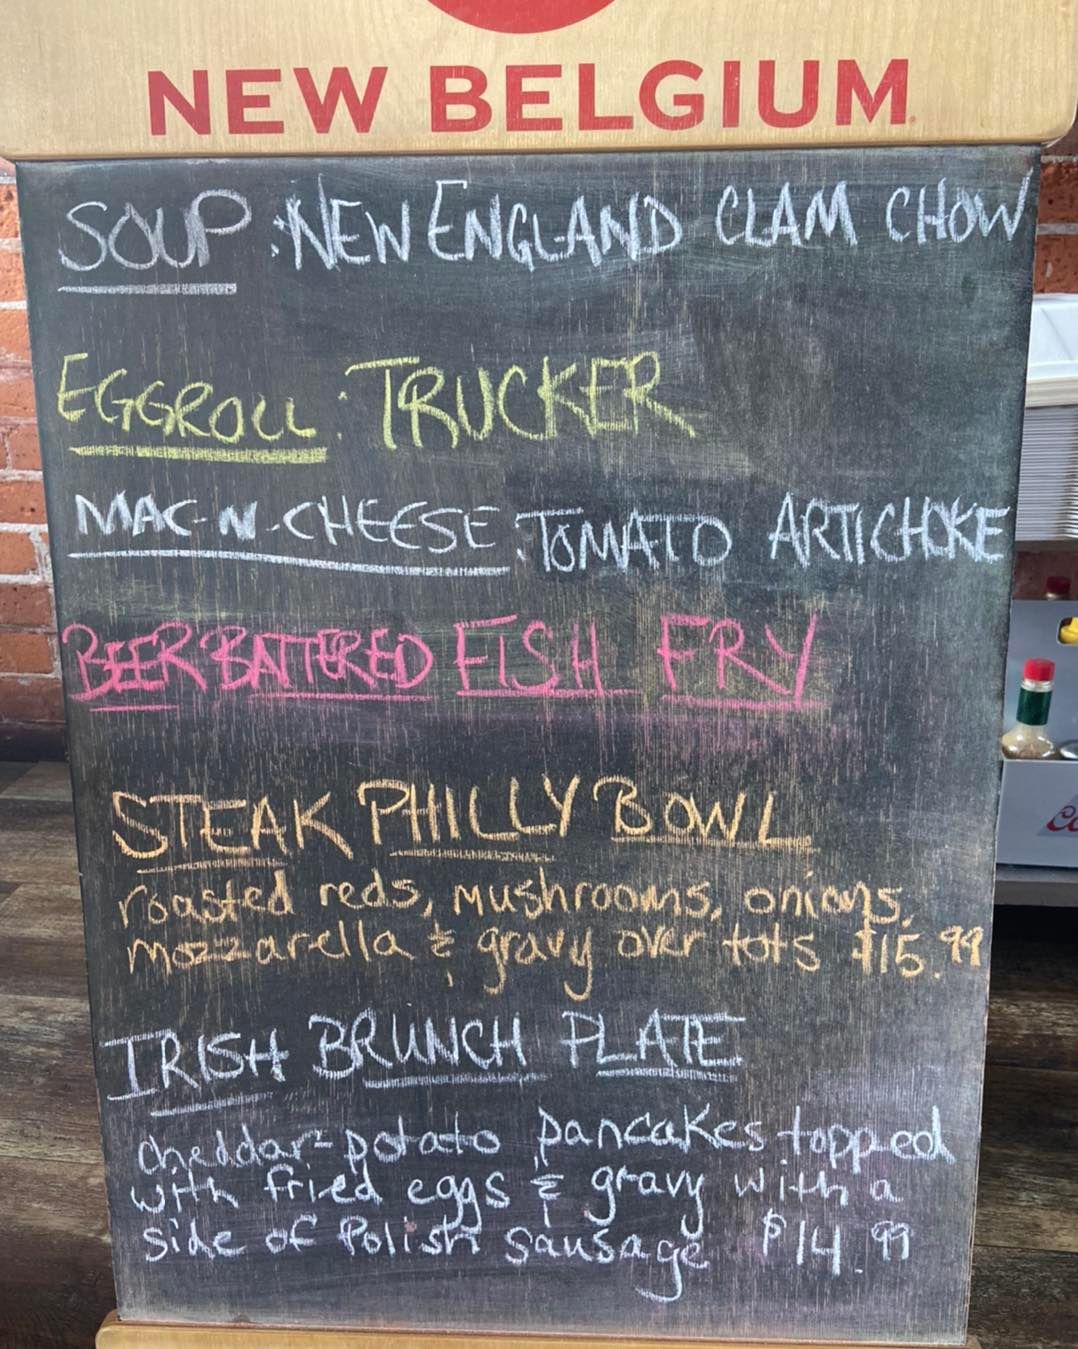 NEW BELGIUM
SOUP: NEW ENGLAND CLAM CHOW
EGGROLL: TRUCKER
MAC-N-CHEESE: TOMATO ARTICHOKE
BEER BATTERED FISH FRY
STEAK PHILLY BOWL
roasted reds, mushrooms, onions,
mozzarella & gravy over tots $15.99
IRISH BRUNCH PLATE
cheddar-potato pancakes topped
with fried eggs & gravy with a
side of Polish sausage $14.99